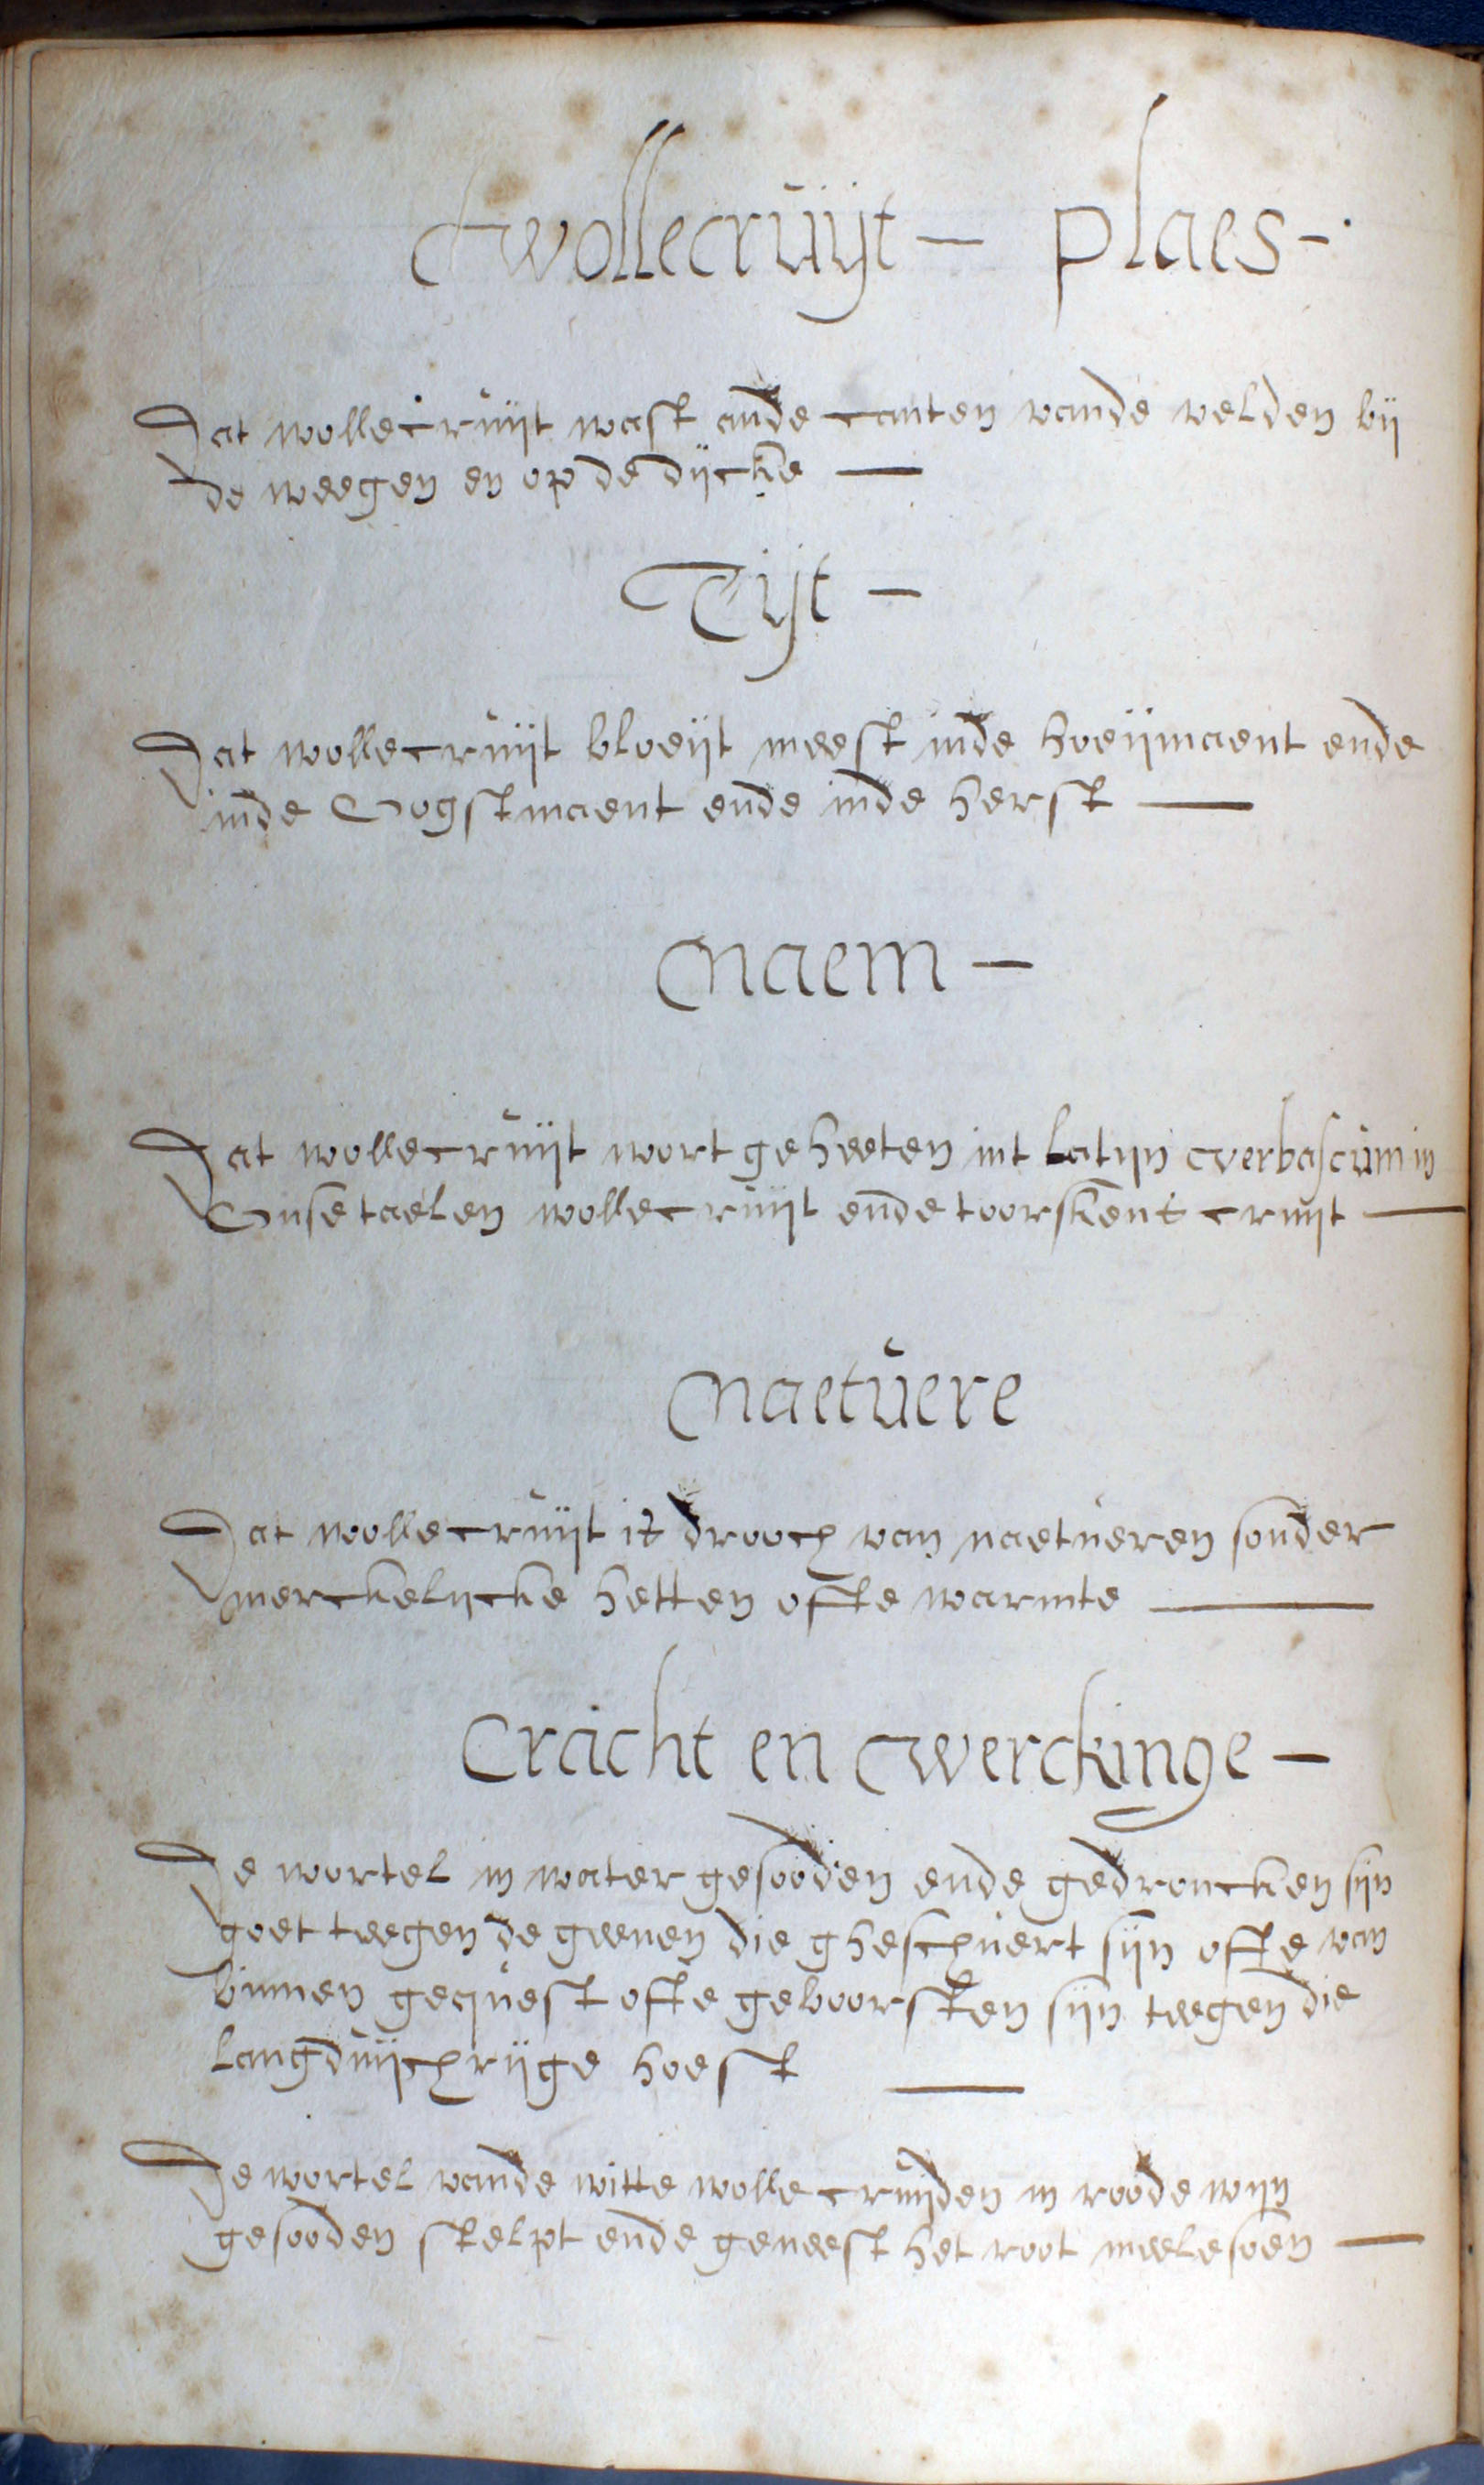 Wollecruijt – plaes –
Dat wollecruijt wast ande canten vande velden bij
de weegen en op de dijcke —
Tijt –
Dat wollecruijt bloeijt meest inde hoeijmaent ende
inde Oogstmaent ende inde herst —
Naem –
Dat wollecruijt wort geheeten int Latijn verbascum in
Onse taelen wollecruijt ende toorskens cruijt —
Naetuere
Dat wollecruijt is drooch van naetueren sonder
merckelijcke hetten ofte warmte —
Cracht en werckinge –
De wortel in water gesooden ende gedroncken sijn
goet teegen de geenen die gheschuert sijn ofte van
binnen gequest ofte geboorsten sijn teegen die
langduijchrijge hoest —
De wortel vande witte wolle cruijden in roode wijn
gesooden stelpt ende geneest het root meelesoen —